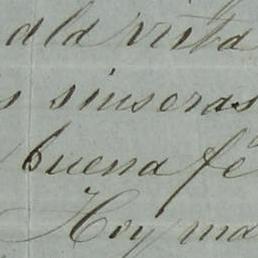 ala vista
s sinseras
buena fé
Hoy ma